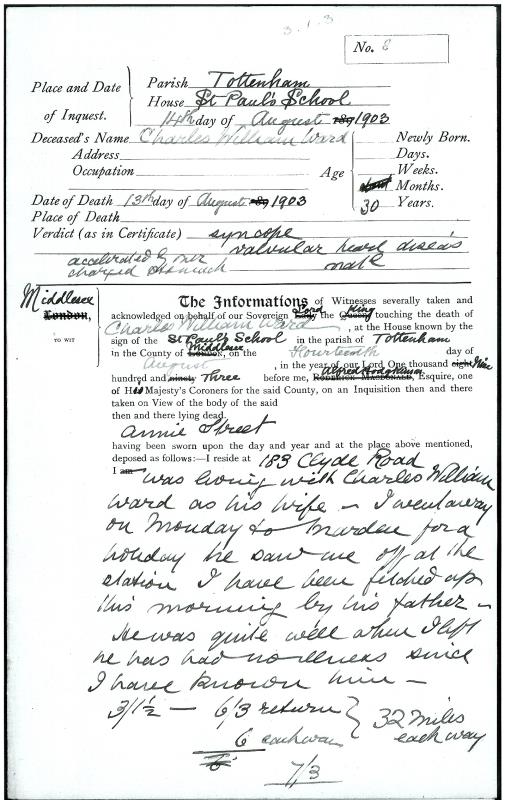 3.1.3
No. 8
Place and Date of Inquest.
Parish Tottenham
House St Paul's School
14th day of August 189 1903
Deceased's Name Charles William Ward
Newly Born.
Address
Days.
Occupation
Age
Weeks.
about Months.
Date of Death 13th day of August 189 1903
30 Years.
Place of Death
Verdict (as in Certificate) syncope
valvular heart disease
accelerated by over
charged stomach
male
Middlesex
London,
TO WIT
The Informations of Witnesses severally taken and
acknowledged on behalf of our Sovereign Lady Lord the Queen King touching the death of
Charles William Ward, at the House known by the
sign of the St Paul's School in the parish of Tottenham
in the County of London, Middlesex on the Fourteenth day of
August, in the year of our Lord One thousand eight Nine
hundred and ninety Three before me, Roderick Macdonald, Alfred Hodgkinson Esquire, one
of His Majesty's Coroners for the said County, on an Inquisition then and there
taken on View of the body of the said
then and there lying dead.
Annie Street
having been sworn upon the day and year and at the place above mentioned,
deposed as follows:—I reside at 183 Clyde Road
I am was living with Charles William
Ward as his wife – I went away
on Monday to Marden for a
holiday he saw me off at the
station I have been fetched up
this morning by his father –
He was quite well when I left
he has had no illness since
I have known him –
3/1½ – 6/3 return
6 each way
32 miles
each way
7/3